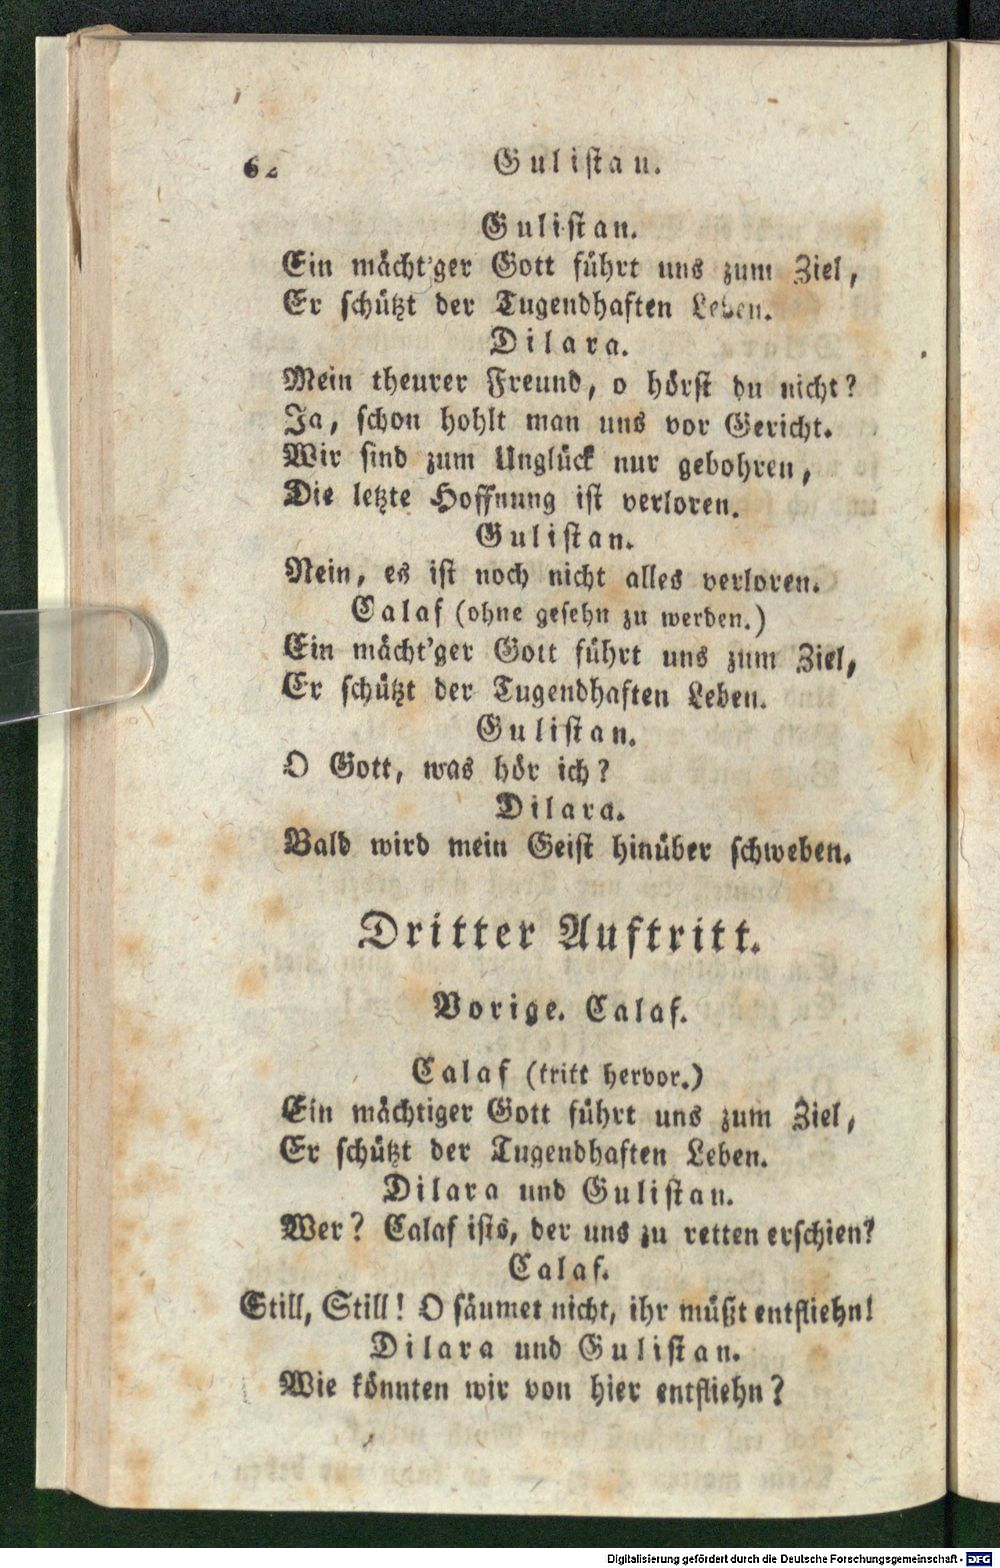 62 Gulistan.
Gulistan.
Ein mächt'ger Gott führt uns zum Ziel,
Er schützt der Tugendhaften Leben.
Dilara.
Mein theurer Freund, o hörst du nicht?
Ja, schon hohlt man uns vor Gericht.
Wir sind zum Unglück nur gebohren,
Die letzte Hoffnung ist verloren.
Gulistan.
Nein, es ist noch nicht alles verloren.
Calaf (ohne gesehn zu werden.)
Ein mächt'ger Gott führt uns zum Ziel,
Er schützt der Tugendhaften Leben.
Gulistan.
O Gott, was hör ich?
Dilara.
Bald wird mein Geist hinüber schweben.
Dritter Auftritt.
Vorige. Calaf.
Calaf (tritt hervor.)
Ein mächtiger Gott führt uns zum Ziel,
Er schützt der Tugendhaften Leben.
Dilara und Gulistan.
Wer? Calaf ists, der uns zu retten erschien?
Calaf.
Still, Still! O säumet nicht, ihr müßt entfliehn!
Dilara und Gulistan.
Wie könnten wir von hier entfliehn?
Digitalisierung gefördert durch die Deutsche Forschungsgemeinschaft - DFG